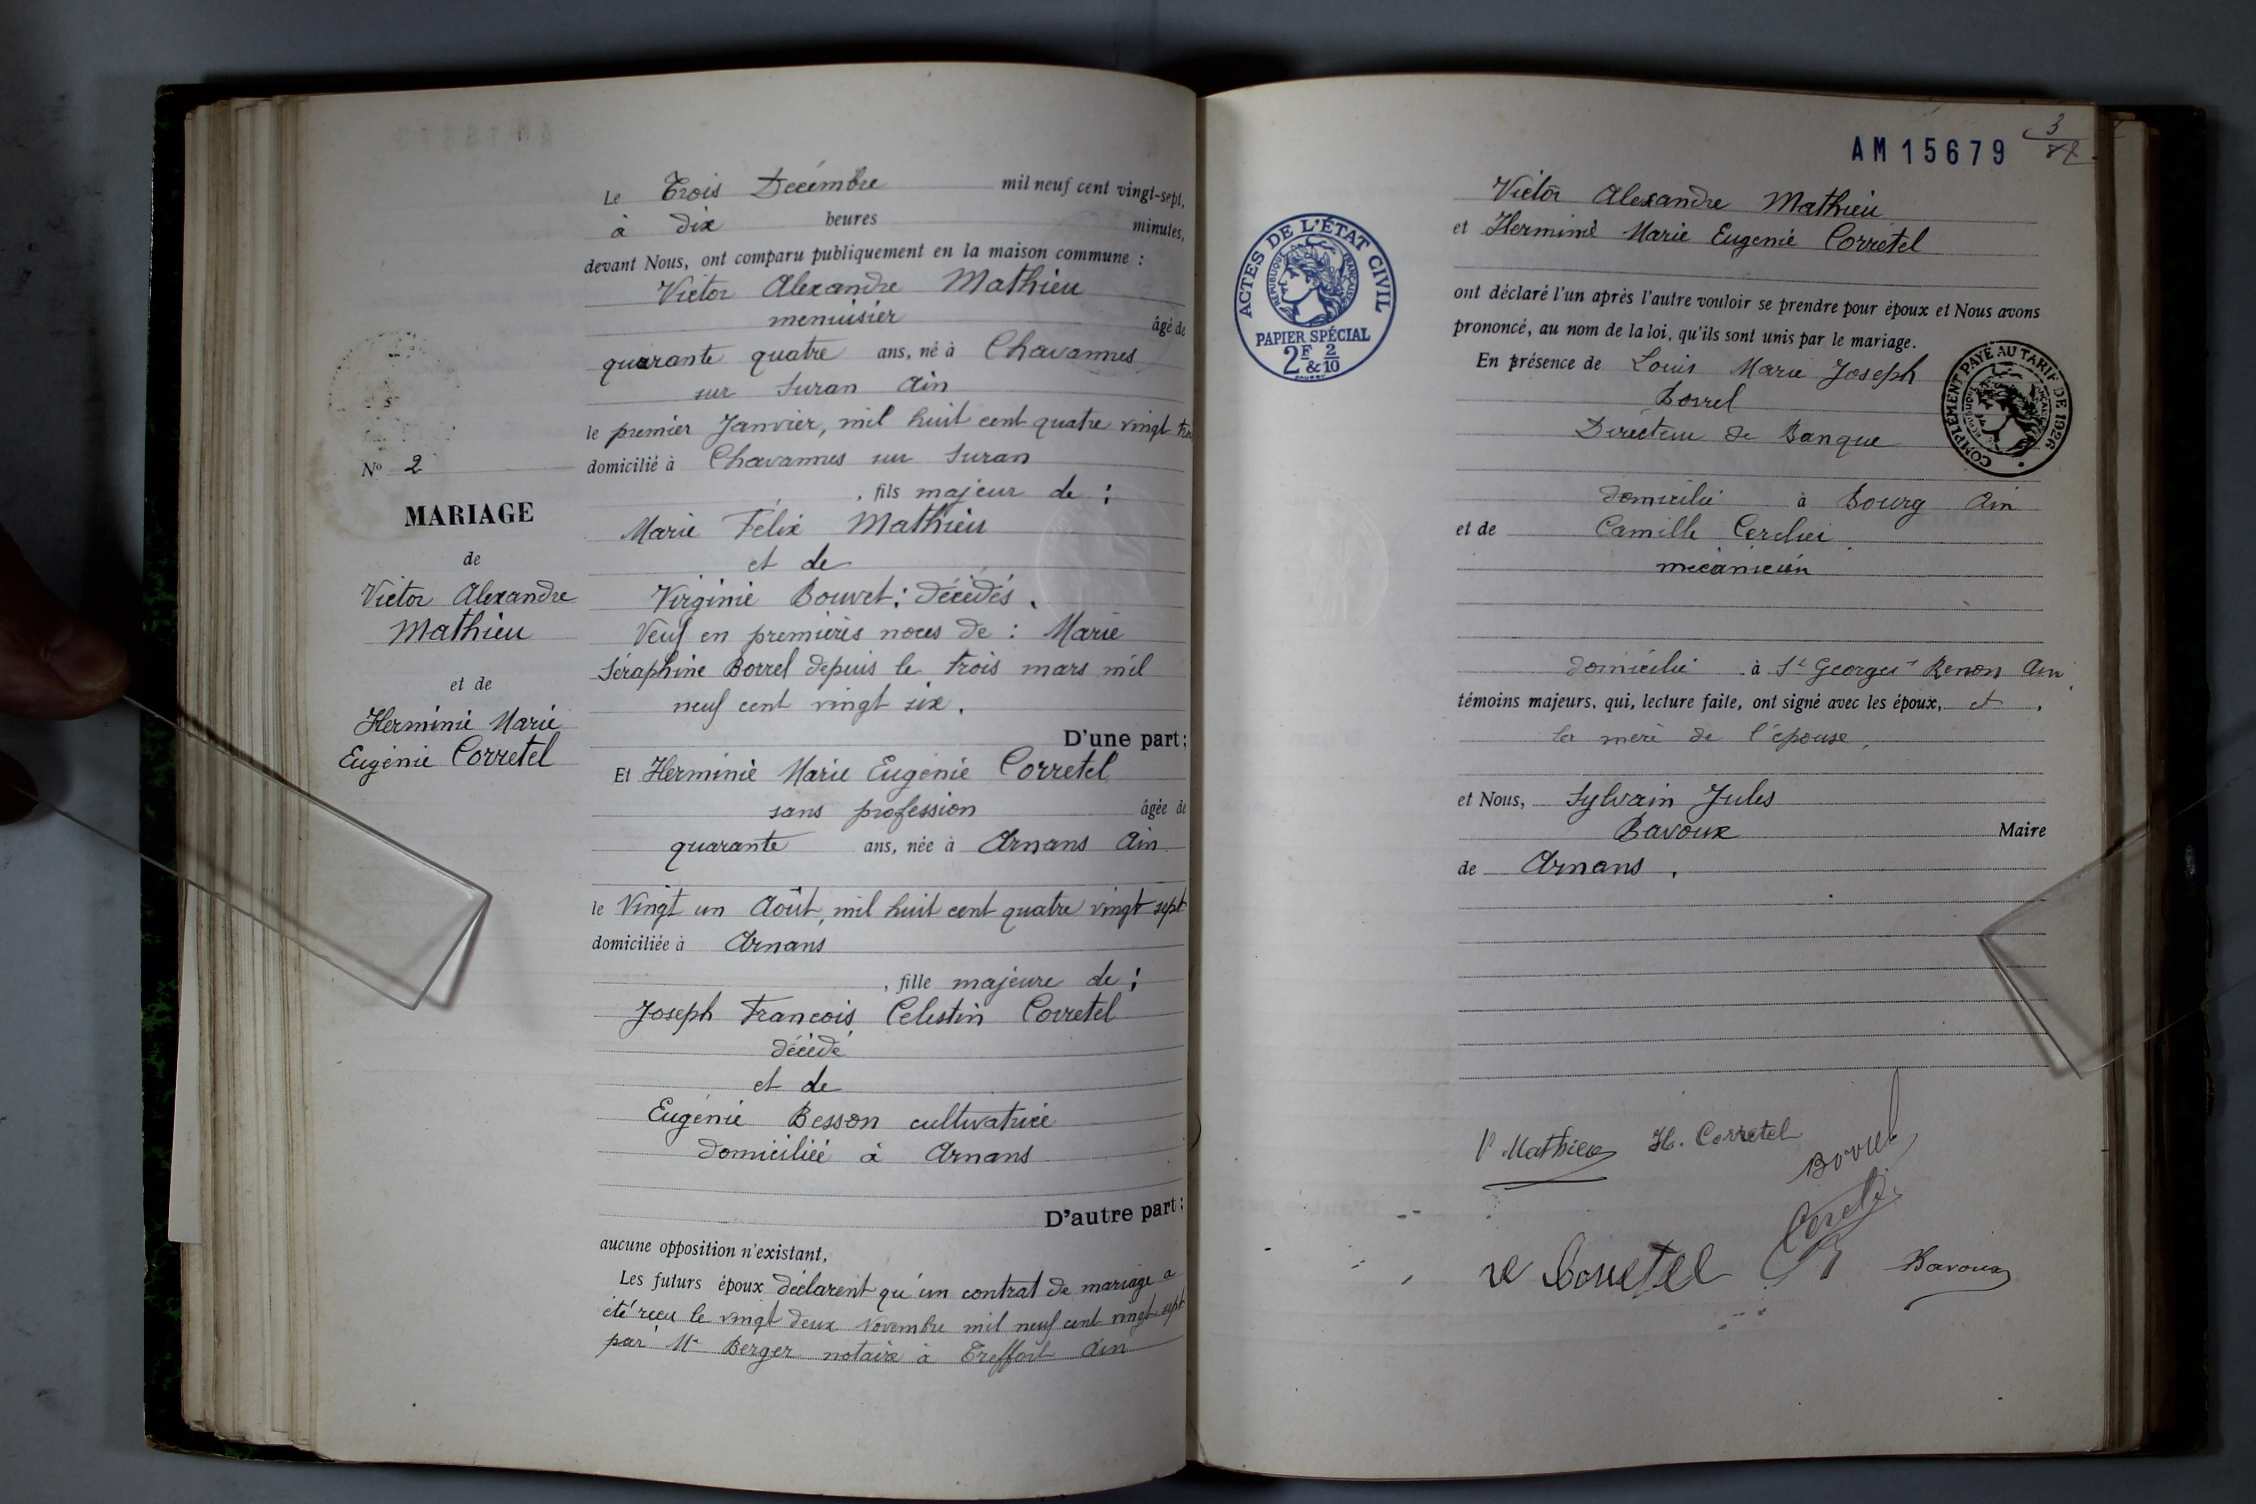 Le Trois Décembre mil neuf cent vingt-sept,
à dix heures minutes,
devant Nous, ont comparu publiquement en la maison commune :
Victor Alexandre Mathieu
menuisier âgé de
quarante quatre ans, né à Chavannes
sur Suran Ain
le premier Janvier, mil huit cent quatre vingt
domicilié à Chavannes sur Suran
, fils majeur de :
Marie Félix Mathieu
et de
Virginie Bouvet : décédés.
Veuf en premières noces de : Marie
Séraphine Borrel depuis le trois mars mil
neuf cent vingt six.
D'une part ;
Et Herminie Marie Eugénie Corretel
sans profession âgée de
quarante ans, née à Arnans Ain
le Vingt un Août, mil huit cent quatre vingt sept
domiciliée à Arnans
, fille majeure de :
Joseph Francois Celestin Corretel
décédé
et de
Eugénie Besson cultivatrice
domiciliée à Arnans
D'autre part :
aucune opposition n'existant,
Les futurs époux déclarent qu'un contrat de mariage a
été reçu le vingt deux Novembre mil neuf cent vingt-sept
par Me Berger notaire à Treffort Ain
No 2
MARIAGE
de
Victor Alexandre
Mathieu
et de
Herminie Marie
Eugénie Corretel
AM15679
3
Victor Alexandre Mathieu
et Herminie Marie Eugenie Corretel
ont déclaré l'un après l'autre vouloir se prendre pour époux et Nous avons
prononcé, au nom de la loi, qu'ils sont unis par le mariage.
En présence de Louis Marie Joseph
Borrel
Directeur de Banque
domicilié à Bourg Ain
et de Camille
mécanicien
domicilié à St Georges Renon Ain
témoins majeurs, qui, lecture faite, ont signé avec les époux, et
la mère de l'épouse,
et Nous, Sylvain Jules
Bavoux Maire
de Arnans.
ACTES DE L'ÉTAT CIVIL
RÉPUBLIQUE FRANÇAISE
PAPIER SPÉCIAL
2F & 2/10
COMPLÉMENT PAYÉ AU TARIF DE 1926
V. Mathieu H. Corretel
Borrel
Corretel Bavoux